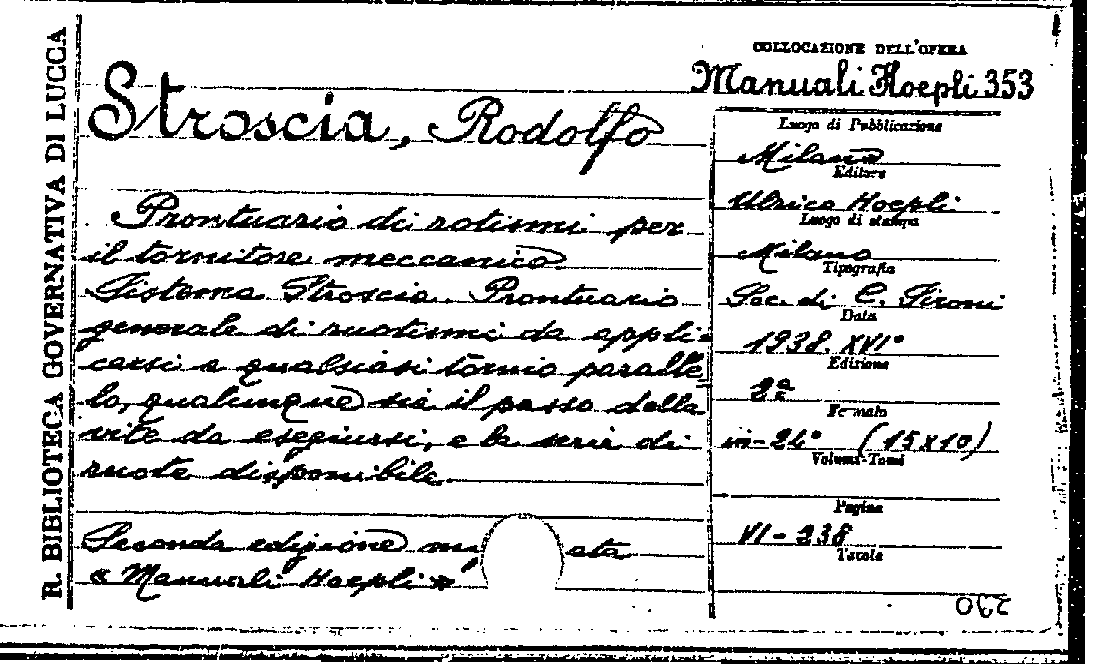 R. BIBLIOTECA GOVERNATIVA DI LUCCA
COLLOCAZIONE DELL'OPERA
Manuali Hoepli 353
Stroscia, Rodolfo
Prontuario di rotismi per
il tornitore meccanico.
Sistema Stroscia. Prontuario
generale di ruotismi da appli-
carsi a qualsiasi tornio paralle-
lo, qualunque sia il passo della
vite da eseguirsi, e la serie di
ruote disponibile.
Seconda edizione ata
« Manuali Hoepli »
Luogo di Pubblicazione
Milano
Editore
Ulrico Hoepli
Luogo di stampa
Milano
Tipografia
Soc. di C. Sironi
Data
1938. XVI°
Edizione
2ª
Formato
in-24° (15x10)
Volumi-Tomi
Pagine
VI - 238
Tavole
290